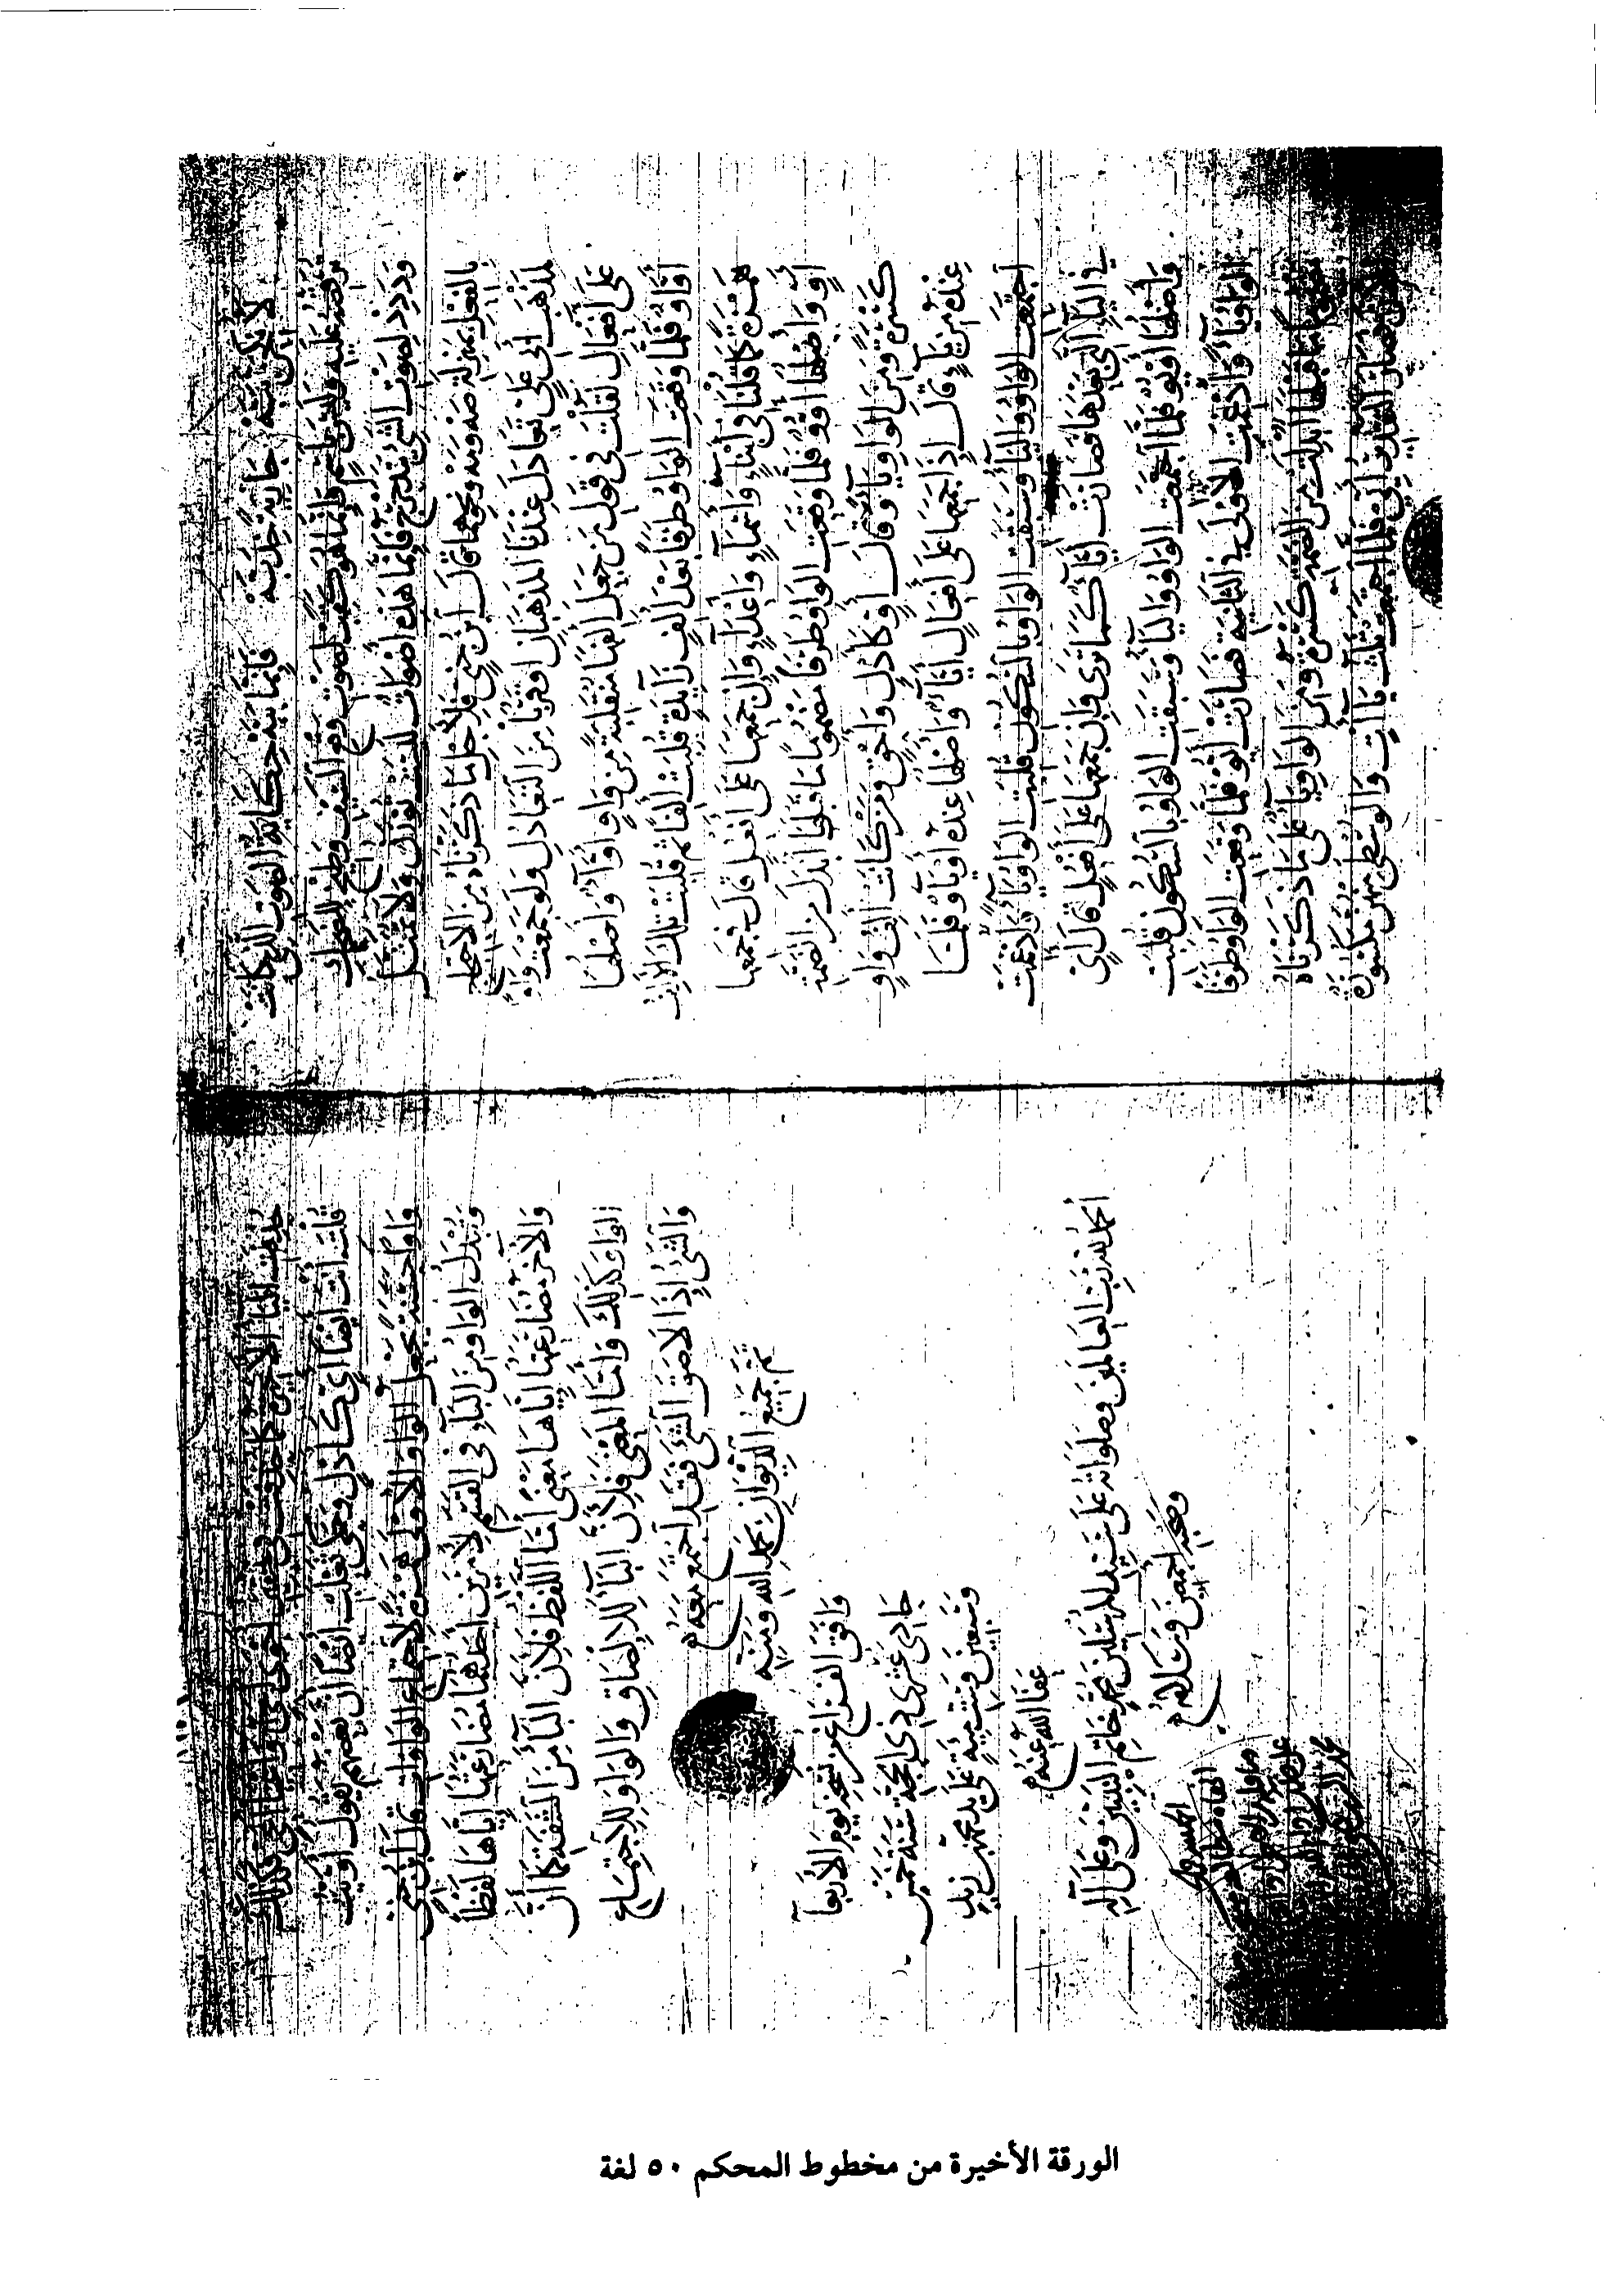 لا نكحن ببه جارية خدبه فإنما ببه حكاية الصوت الذي كانت
ترقصه عليه وليس باسم فإنما هو كقب لصوت وقع السيف وطيخ للضحك
وددد لصوت الشيء يتدحرج فإنما هذه أصوات ليست توزن ولا تمثل
بالفعل بمنزلة صه ومه ونحوهما قال ابن جني فلأجل ما ذكرناه من الاحتجاج
لمذهب أبي علي تعادل عندنا المذهبان أو قربا من التعادل ولو جمعت واوا
على أفعال لقلت في قول من جعل ألفها منقلبة من واو أواء وأصلها
أواو فلما وقعت الواو طرفا بعد ألف زايدة قلبت ألفا ثم قلبت تلك الألف
همزة كما قلنا في أبناء وأسماء وأعداء وإن جمعها على أفعل قال في جمعها
أو وأصلها أووو فلما وقعت الواو طرفا مضموما ما قبلها أبدل من الضمة
كسرة ومن الواو ياء وقال أو كأدل وأحق ومن كانت ألف واو
عنده من ياء قال إذا جمعها على أفعال أياء وأصلها عنده أوياء فلما
اجتمعت الواو والياء وسبقت الواو بالسكون قلبت الواو ياء وأدغمت
في الياء التي بعدها فصارت أياء كما ترى وإن جمعها على أفعل قال أي
وأصلها أويو فلما اجتمعت الواو والياء وسبقت الواو بالسكون قلبت
الواو ياء وأدغمت الأولى في الثانية فصارت أيو فلما وقعت الواو طرفا
مضموما ما قبلها أبدلت من الضمة كسرة ومن الواو ياء على ما ذكرناه
الآن فصار التقدير أيي فلما اجتمعت ثلث ياآت والوسطى منهن مكسورة
حذفت الياء الأخيرة كما حذفت في تحقير أحوى أحي وأعيا أعي فكذلك
قلت أنت أيضا أي كأدل وحكى ثعلب أيضا أن بعضهم يقول أويت
واوا حسنة يجعل الواو الأولى همزة لاجتماع الواوات قال ابن جني
وتبدل الواو من الباء في القسم لأمرين أحدهما مضارعتها إياها لفظا
والآخر مضارعتها إياها معنى أما اللفظ فلأن الباء من الشفة كما أن
الواو كذلك وأما المعنى فلأن الباء للإلصاق والواو للاجتماع
والشيء إذا لاصق الشيء فقد اجتمع معه
تم جميع الديوان بحمد الله ومنه
وافق الفراغ من نسخه يوم الأربعا
حادي عشري ذي الحجة سنة خمس
وسبعين وستمية على يد محمد بن زيد
عفا الله عنه
الحمد لله رب العالمين وصلواته على سيد المرسلين محمد خاتم النبيين وعلى آله
وصحبه أجمعين وسلامه
الورقة الأخيرة من مخطوط المحكم ٥٠ لغة